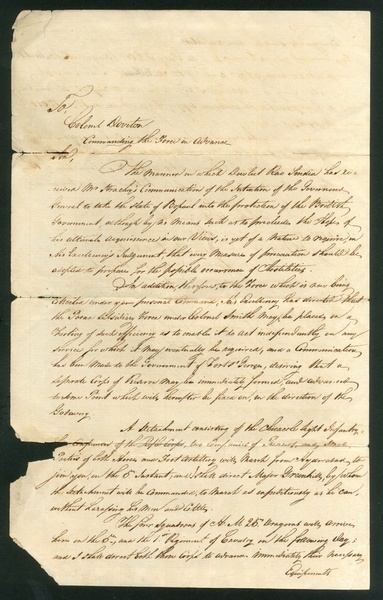 To
Colonel Doveton
Commanding the Force in Advance
Sir,
The Manner in which Dowlut Rao Sindia has re
ceived Mr Strachey's Communication of the Intention of the Governor
General to take the State of Bopaul into the protection of the British
Government, although by no Means such as to preclude the Hope of
his ultimate acquiescence in our Views, is yet of a Nature to require, in
His Excellency's Judgement, that every Measure of precaution should be
adopted to prepare for the possible occurrence of Hostilities.
In addition, therefore, to the Force which is now being
collected under your personal Command, his Excellency has directed that
the Poona Subsidiary Force under Colonel Smith may be placed on a
Footing of such efficiency as to enable it to act independently on any
Service for which it may eventually be required, and a Communication
has been Made to the Government of Fort St George, desiring that a
separate Corps of Reserve may be immediately formed, and advanced
to some Point which will hereafter be fixed on, in the direction of the
Godavery.
A Detachment consisting of the Chicacole Light Infantry,
Companies of the Rifle Corps, two Companies of Pioneers, and
Parties of both Horse and Foot Artillery will March from Hyderabad, to
join you, on the 6th Instant, and I shall direct Major Greenhill, by whom
the detachment will be Commanded, to March as expeditiously as he can,
without harassing his Men and Cattle.
The four Squadrons of H. M. 25th Dragoons will arrive
here on the 6th, and the 1st Regiment of Cavalry on the following day;
and I shall direct both these Corps to advance immediately their necessary
Equipments